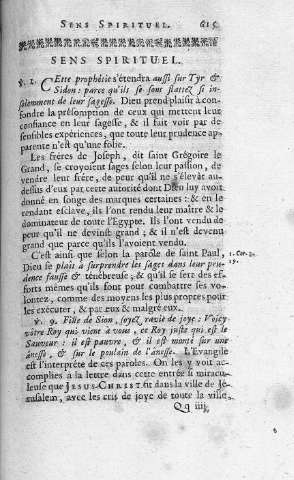 SENS SPIRITUEL. 615
SENS SPIRITUEL.
℣. 2. CEtte prophétie s'étendra aussi sur Tyr &
Sidon : parce qu'ils se sont flattez si in-
solemment de leur sagesse. Dieu prend plaisir à con-
fondre la présomption de ceux qui mettent leur
confiance en leur sagesse, & il fait voir par de
sensibles expériences, que toute leur prudence ap-
parente n'est qu'une folie.
Les fréres de Joseph, dit saint Grégoire le
Grand, se croyoient sages selon leur passion, de
vendre leur frére, de peur qu'il ne s'élevât au-
dessus d'eux par cette autorité dont Dieu luy avoit
donné en songe des marques certaines : & en le
rendant esclave, ils l'ont rendu leur maître & le
dominateur de toute l'Egypte. Ils l'ont vendu de
peur qu'il ne devinst grand ; & il n'est devenu
grand que parce qu'ils l'avoient vendu.
C'est ainsi que selon la parole de saint Paul, 1. Cor. 3.
Dieu se plaît à surprendre les sages dans leur pru- 19.
dence fausse & ténébreuse ; & qu'il se sert des ef-
forts mêmes qu'ils font pour combattre ses vo-
lontez, comme des moyens les plus propres pour
les exécuter, & par eux & malgré eux.
℣. 9. Fille de Sion, soyez ravie de joye : Voicy
vôtre Roy qui vient à vous, ce Roy juste qui est le
Sauveur : il est pauvre, & il est monté sur une
ânesse, & sur le poulain de l'ânesse. L'Evangile
est l'interpréte de ces paroles. On les y voit ac-
complies à la lettre dans cette entrée si miracu-
leuse que JESUS-CHRIST fit dans la ville de Jé-
rusalem, avec les cris de joye de toute la ville.
Qq iiij